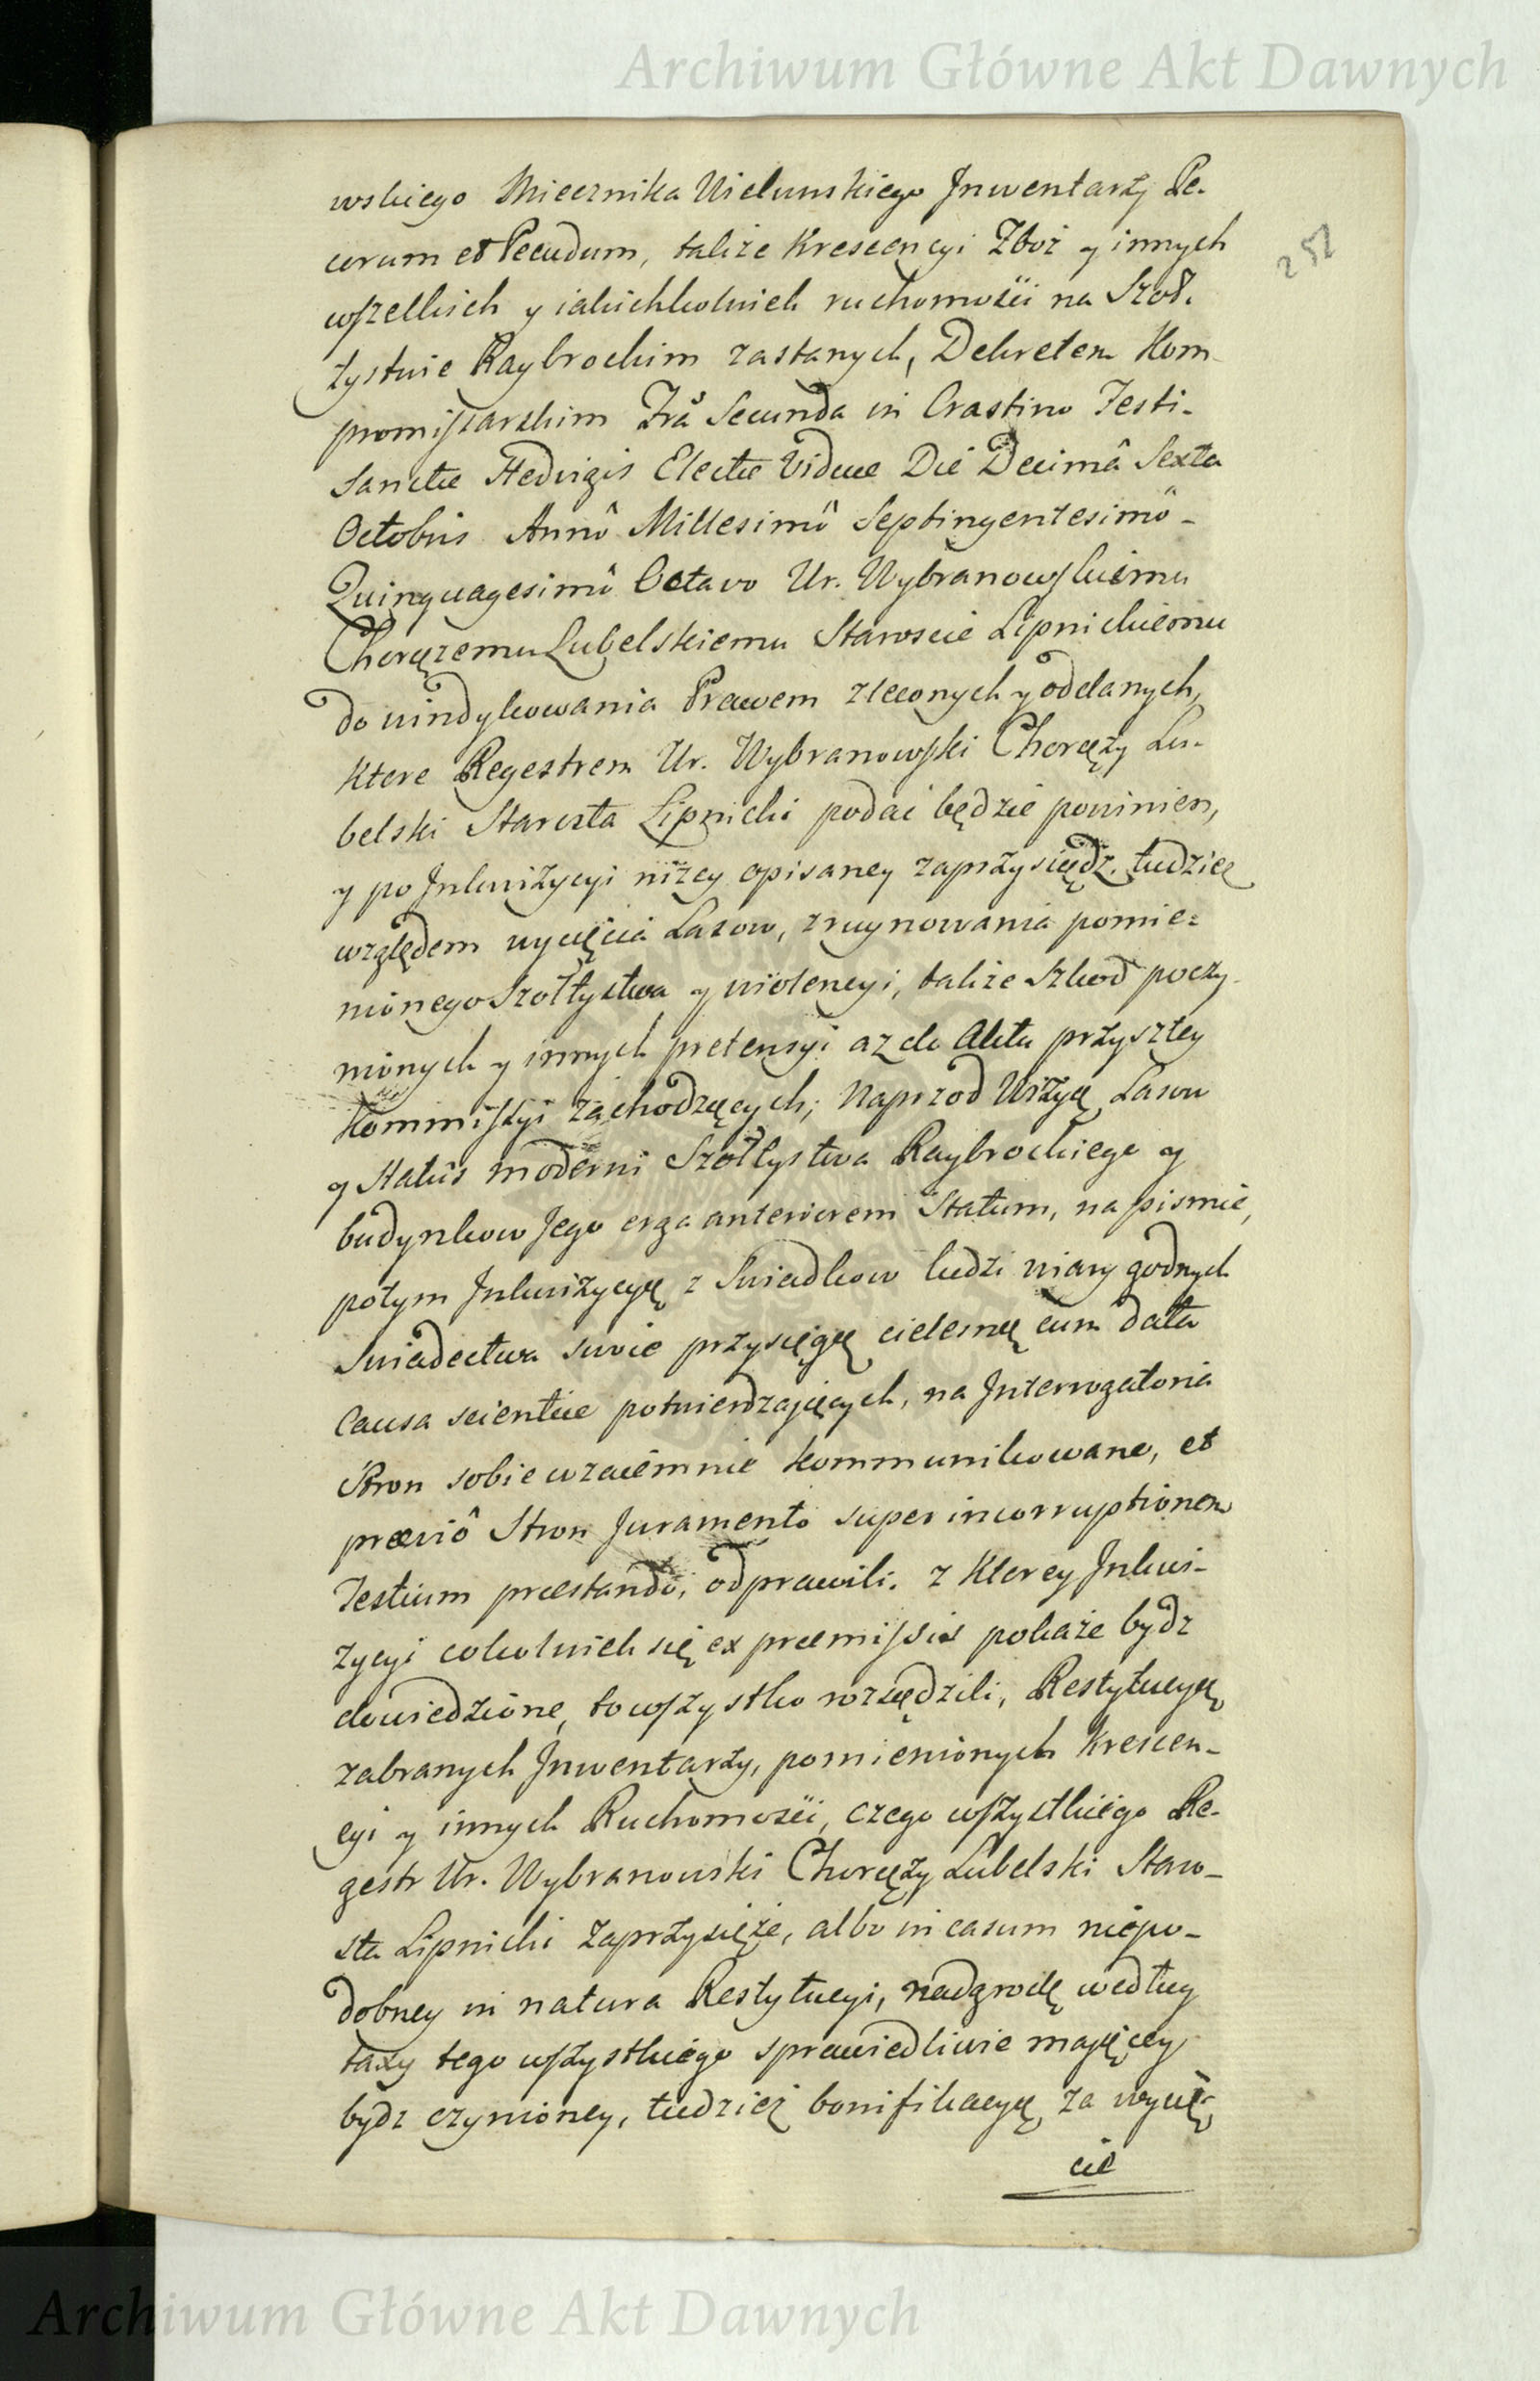 Archiwum Główne Akt Dawnych
252
wskiego Miecznika Wielunskiego Inwentarzy Pe-
corum et Pecudum, takze Krescencyi Zboż y innych
wszelkich y iakichkolwiek ruchomości na Szoł-
tystwie Raybrockim zastanych, Dekretem Kom-
promissarskim Friâ Secunda in Crastino Festi-
Sanctæ Hedvigis Electæ Viduæ Die Decimâ Sexta
Octobris Annô Millesimô Septingentesimô-
Quinquagesimô Octavo Ur. Wybranowskiemu
Chorązemu Lubelskiemu Staroscie Lipnickiemu
do windykowania Prawem zleconych y oddanych,
ktore Regestrem Ur. Wybranowski Chorąży Lu-
belski Starosta Lipnicki podać będzie powinien,
y po Inkwizycyi niżey opisaney zaprzysiądz, tudzież
względem wycięcia Lasow, zruynowania pomie-
nionego Szołtystwa y wiolencyi, takze Szkod poczy-
nionych y innych pretensyi az do Aktu przyszłey
Kommissyi zachodzących; Naprzod Wizyą Lasow
y Status moderni Szołtystwa Raybrockiego y
budynkow Jego erga anteriorem Statum, na pismie,
potym Inkwizycyą z Swiadkow ludzi wiary godnych
Swiadectwa swoie przysięgą cielesną cum data
Causa scientiæ potwierdzaiących, na Interrogatoria
Stron sobie wzaiemnie kommunikowane, et
præviô Stron Juramento super incorruptionem
Testium præstandô, odprawili. z ktorey Inkwi-
zycyi cokolwiek się ex præmissis pokaże bydz
dowiedzione, to wszystko rozsądzili, Restytucyą
zabranych Inwentarzy, pomienionych Krescen-
cyi y innych Ruchomości, czego wszystkiego Re-
gestr Ur. Wybranowski Chorąży Lubelski Staro-
sta Lipnicki zaprzysięże, albo in casum niepo-
dobney in natura Restytucyi, nadgrodę według
taxy tego wszystkiego sprawiedliwie maiącey
bydz czynioney, tudzież bonifikacyą za wycię-
cie
Archiwum Główne Akt Dawnych